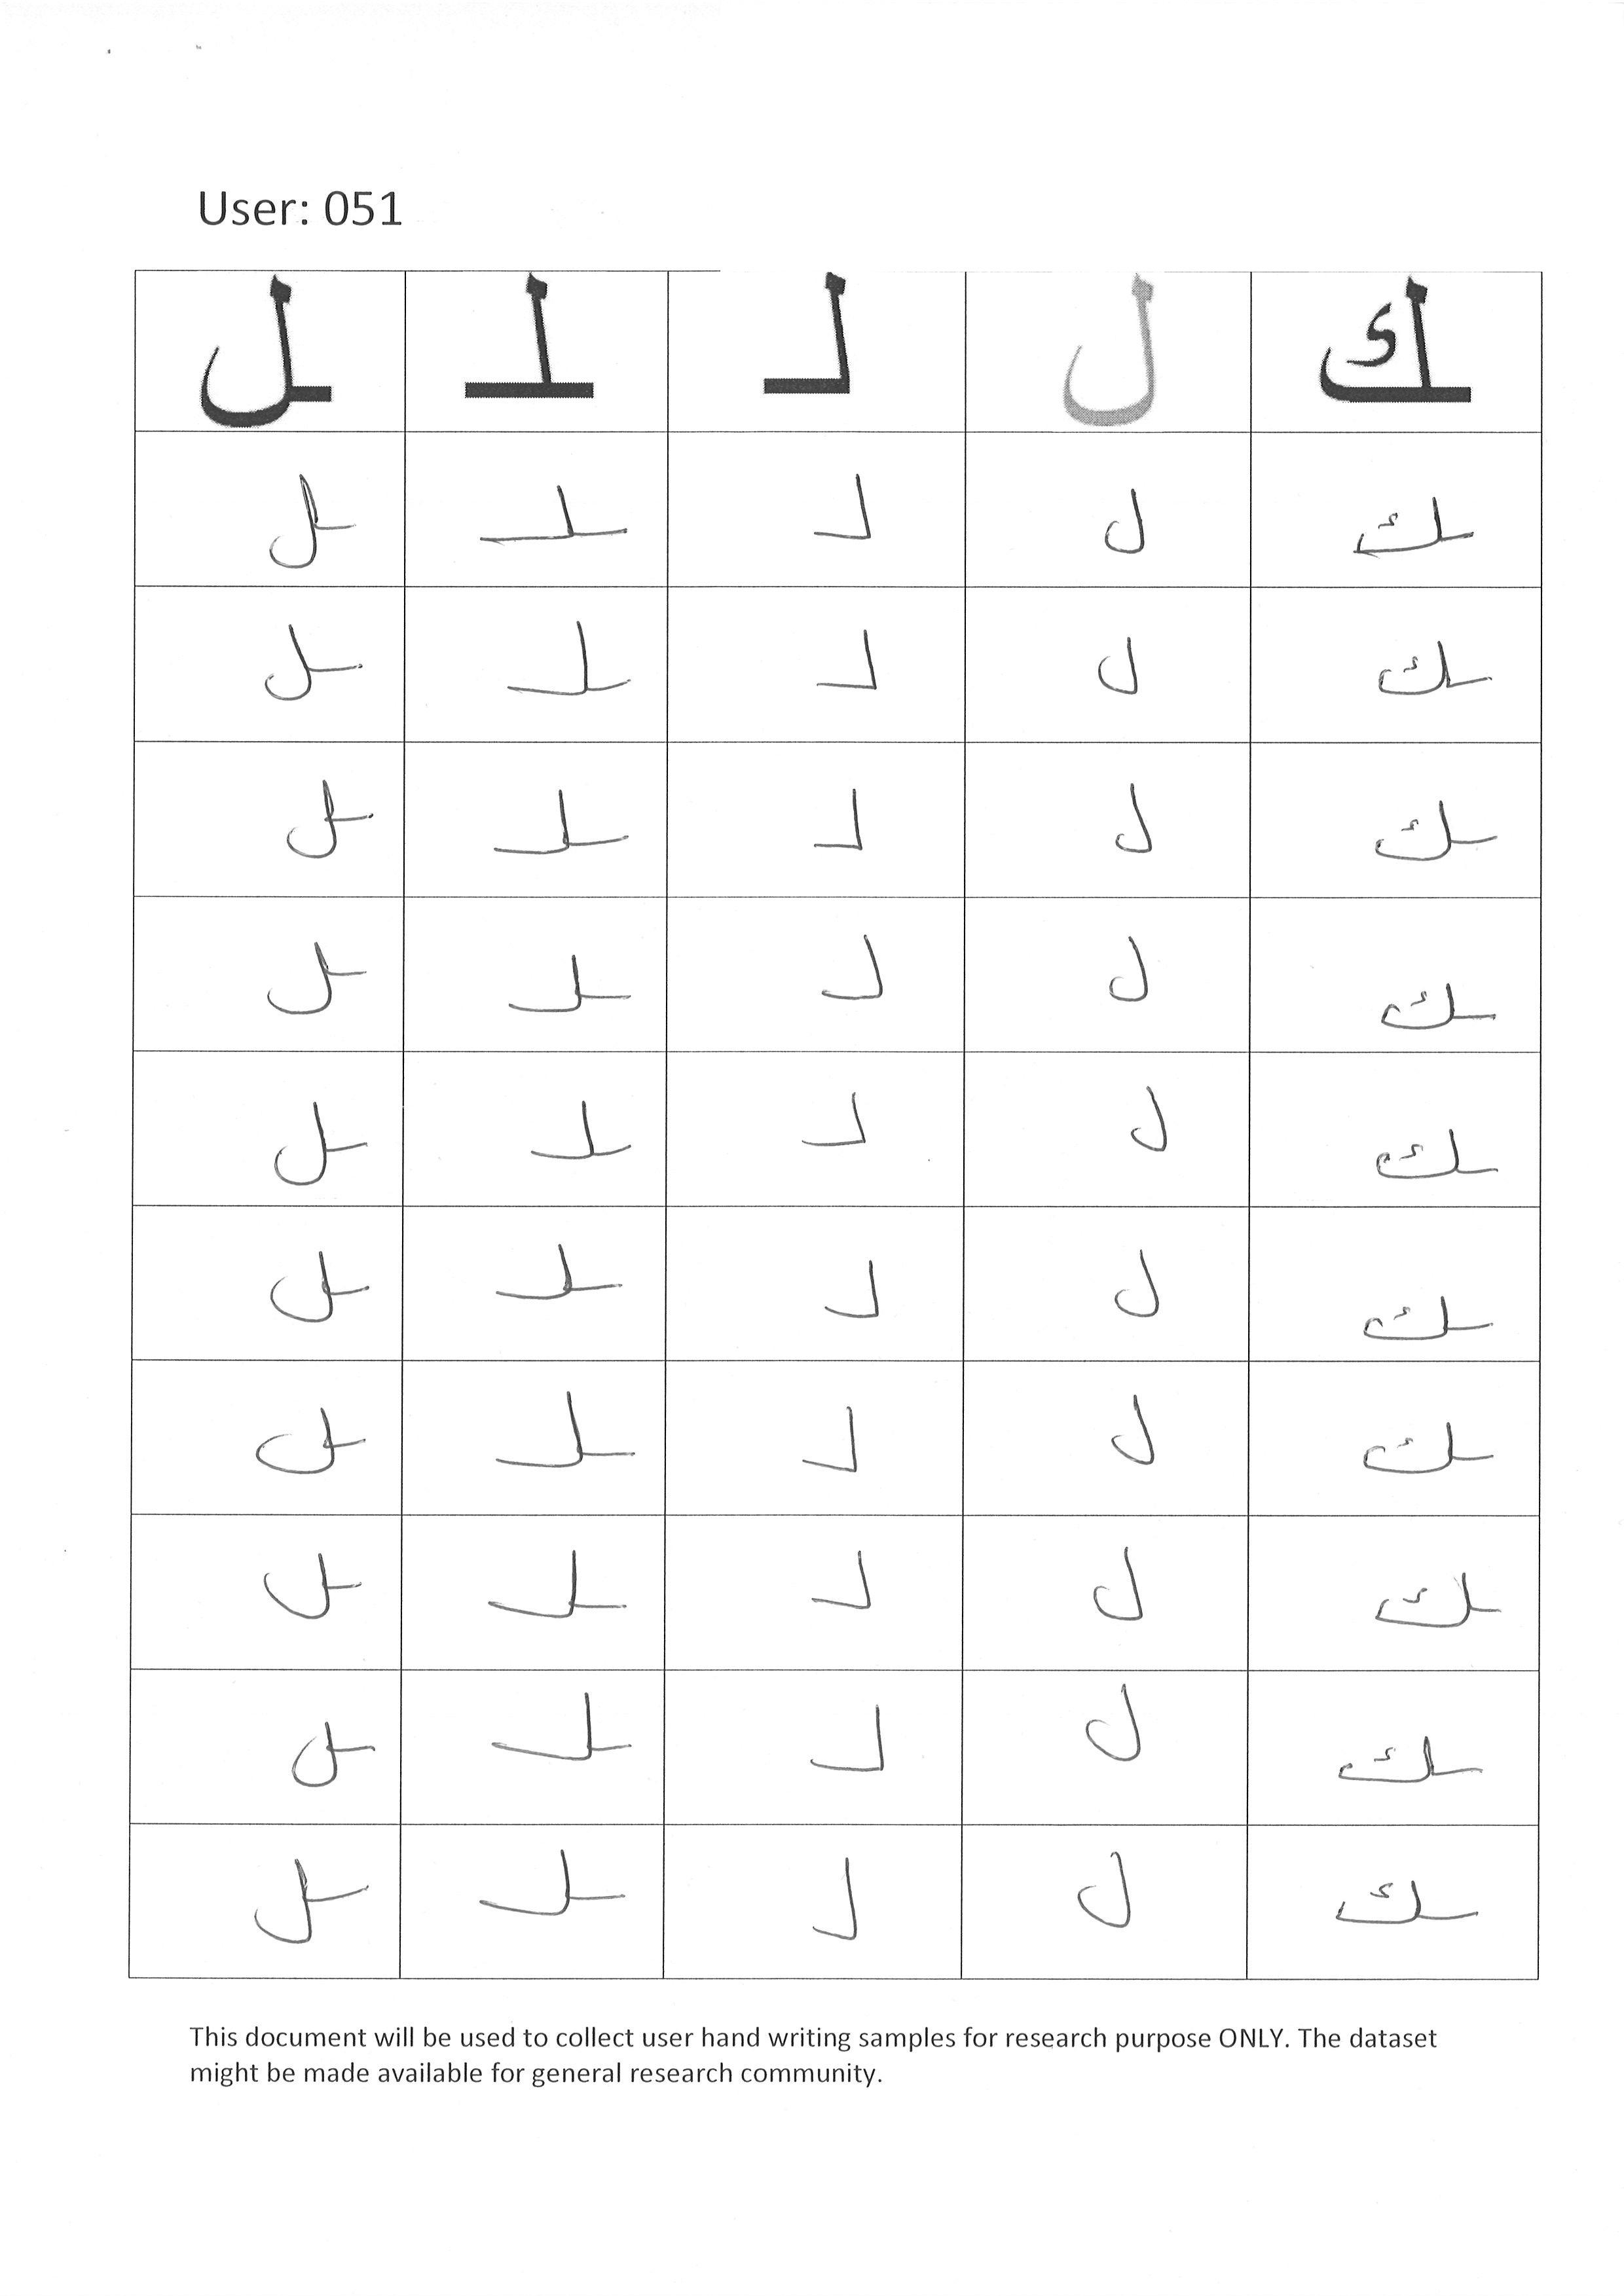 User: 051
ـل ـلـ لـ ل ـك
ـل ـلـ لـ ل ـك
ـل ـلـ لـ ل ـك
ـل ـلـ لـ ل ـك
ـل ـلـ لـ ل ـك
ـل ـلـ لـ ل ـك
ـل ـلـ لـ ل ـك
ـل ـلـ لـ ل ـك
ـل ـلـ لـ ل ـك
ـل ـلـ لـ ل ـك
ـل ـلـ لـ ل ـك
This document will be used to collect user hand writing samples for research purpose ONLY. The dataset
might be made available for general research community.